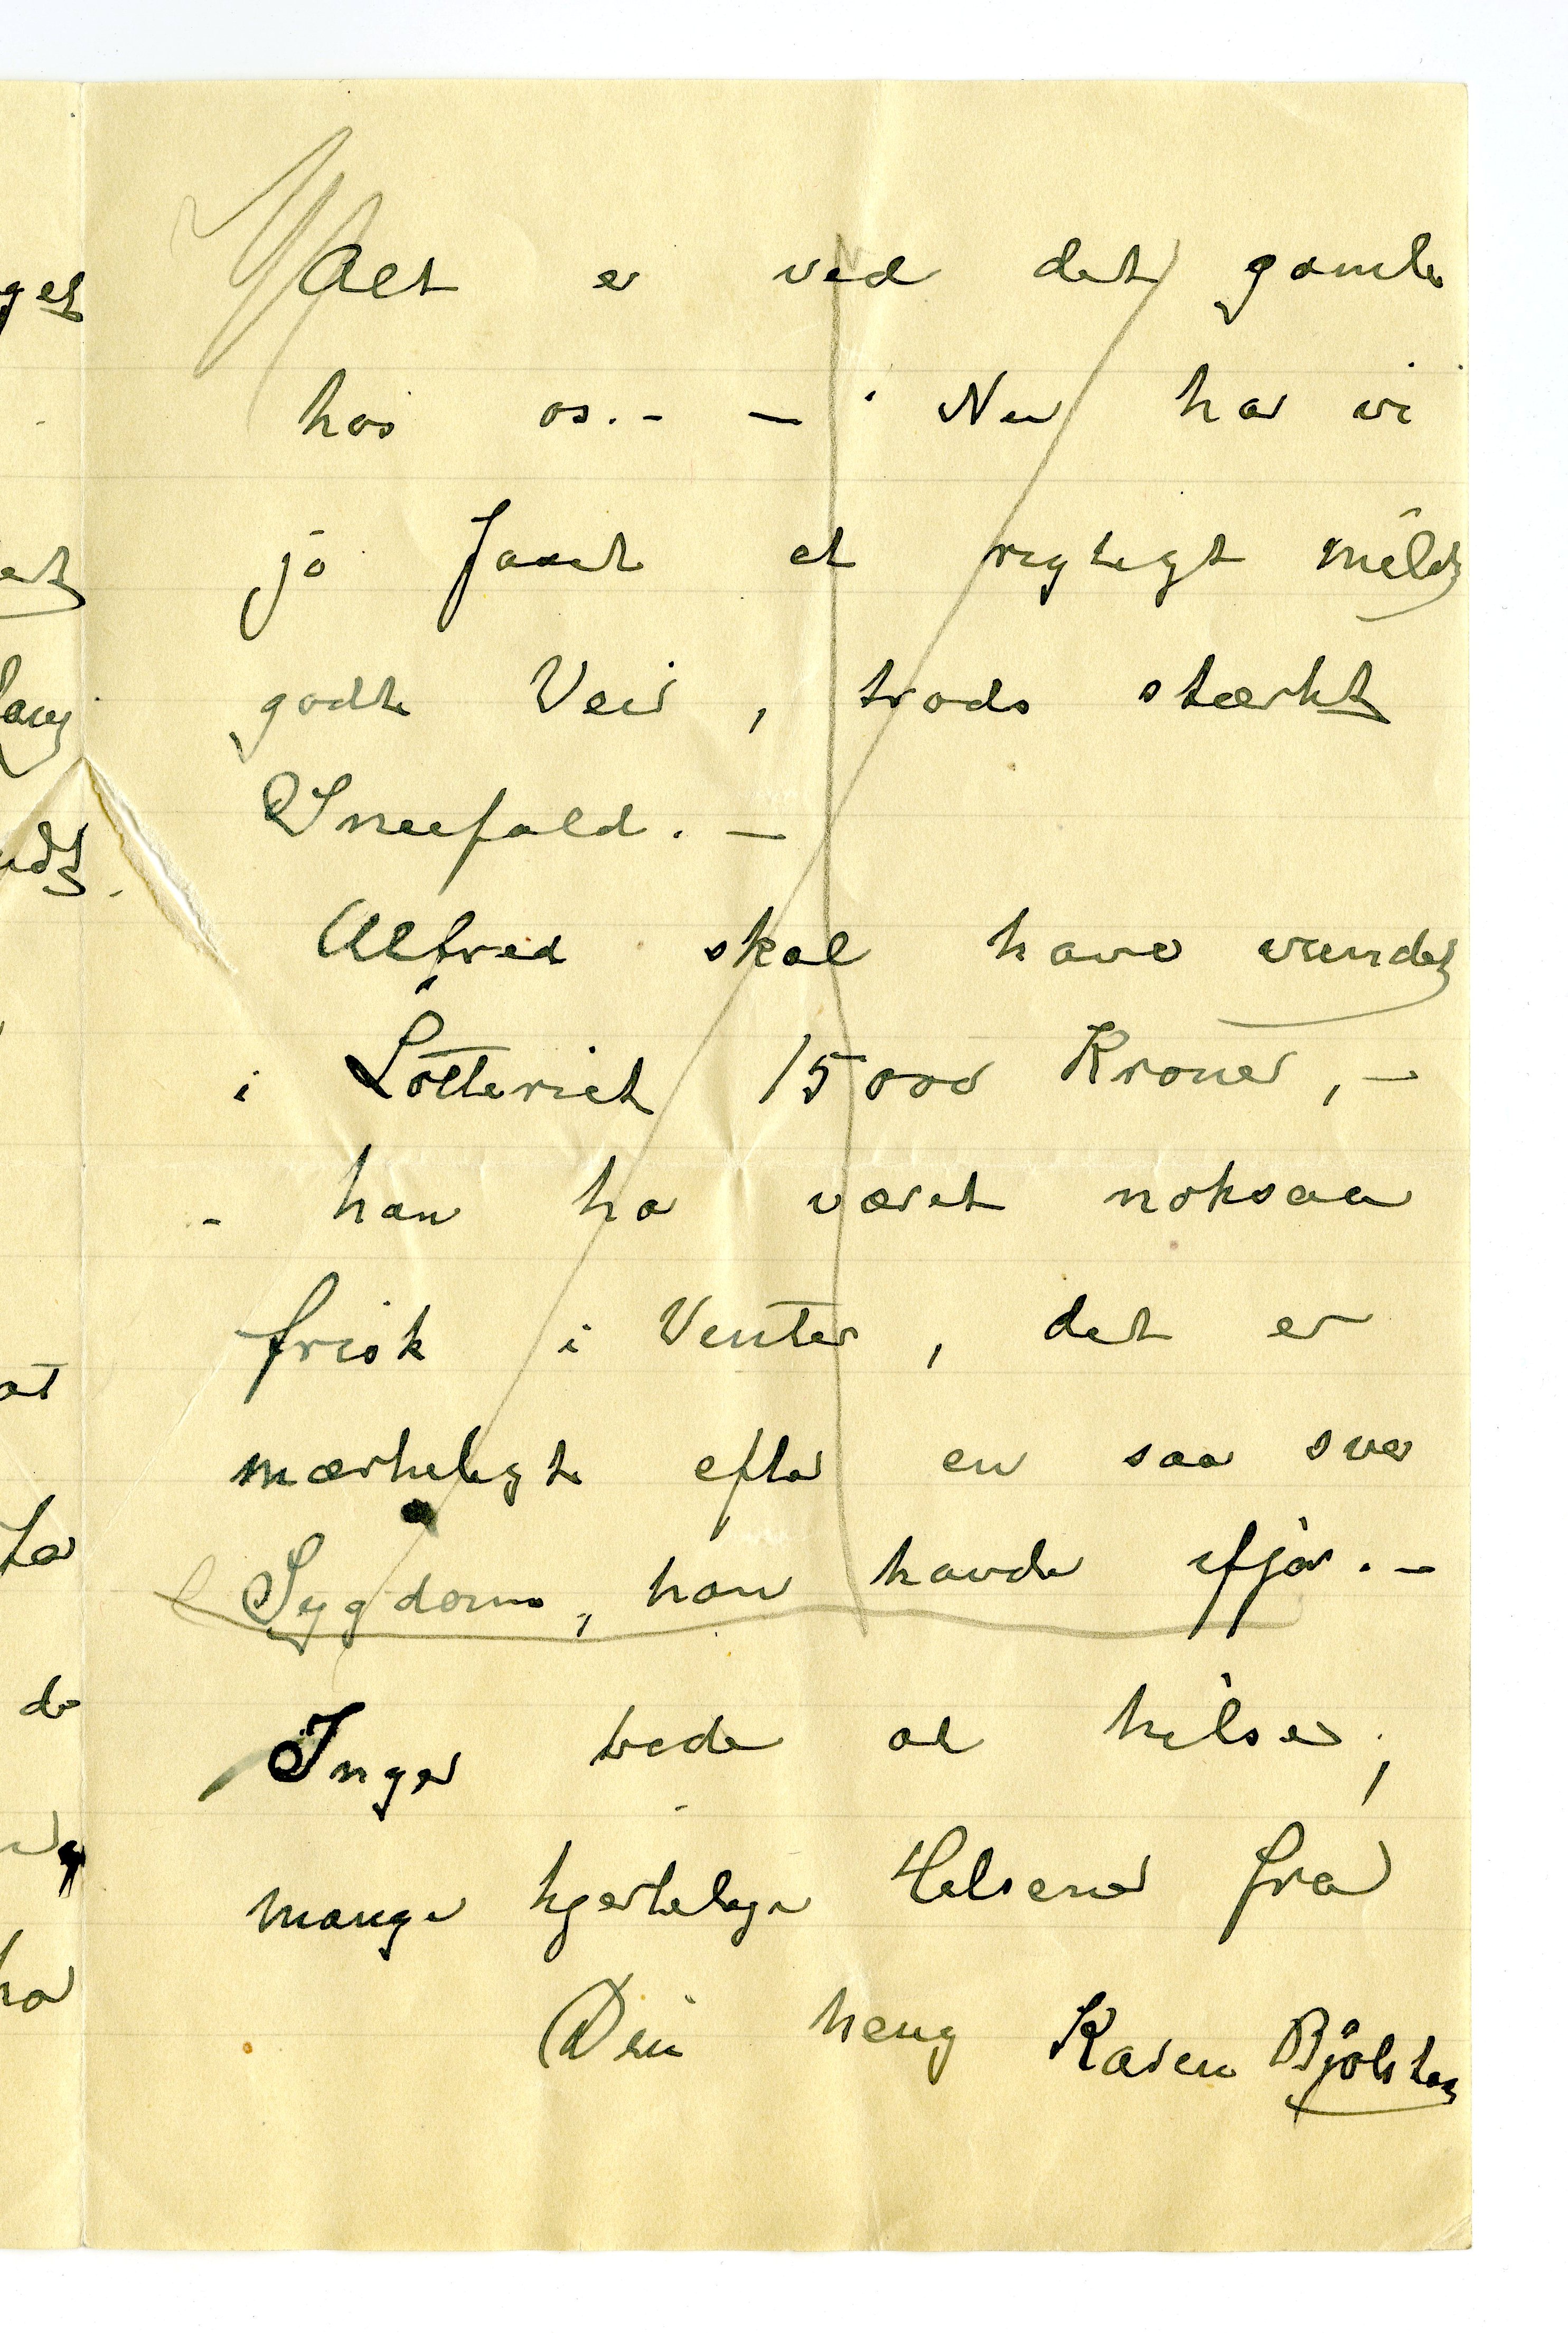 Alt er ved det gamle
hos os. - — Nu har vi
jo faaet et rigtigt mildt
godt Veir, trods stærkt
Sneefald. —
Alfred skal have vundet
i Lotteriet 15000 Kroner, —
- han ha været noksaa
frisk i Vinter, det er
mærkeligt efter en saa svær
Sygdom, han havde ifjor. —
Inger beder at hilse,
mange hjertelige Hilsener fra
Din heng Karen Bjölstad
get
et
lang
ndt.
at
ta
de
ha